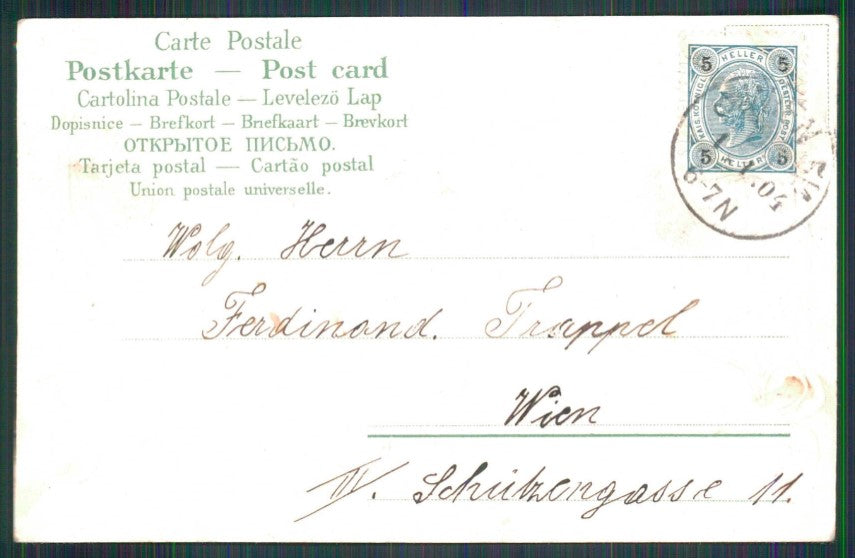 Carte Postale
Postkarte — Post card
Cartolina Postale — Levelezö Lap
Dopisnice — Brefkort — Briefkaart — Brevkort
ОТКРЫТОЕ ПИСЬМО.
Tarjeta postal — Cartão postal
Union postale universelle.
5 HELLER 5
KAIS. KÖNIGL. OESTERR. POST
5 HELLER 5
WIEN
1 1.04
6-7N
Wolg. Herrn
Ferdinand. Trappel
Wien
III. Schützengasse 11.